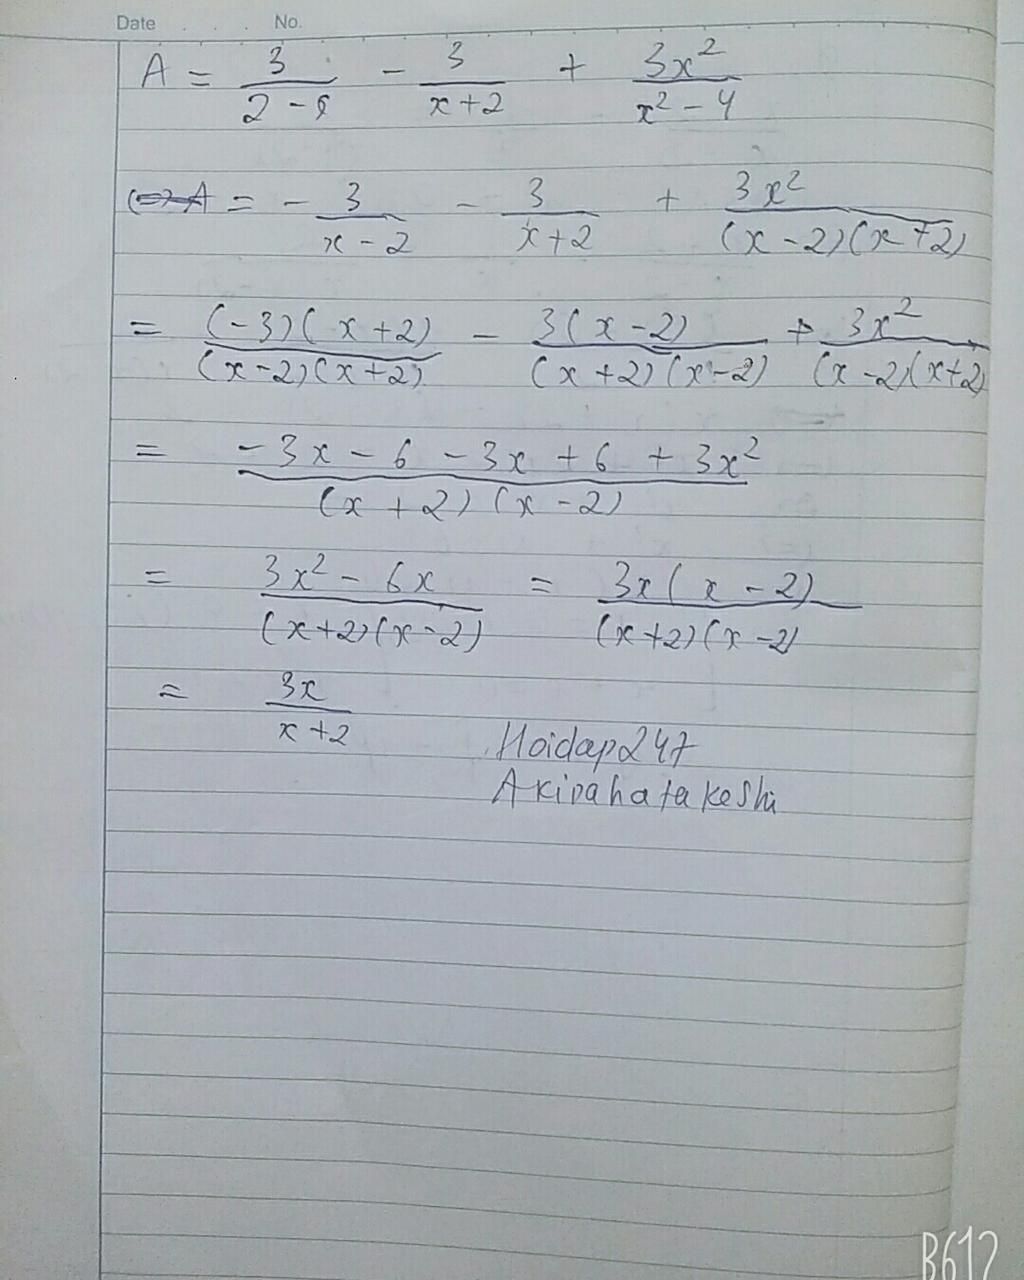 Date . . . No.
A = 3/(2 - x) - 3/(x + 2) + 3x²/(x² - 4)
= - 3/(x - 2) - 3/(x + 2) + 3x²/((x - 2)(x + 2))
= (-3)(x + 2)/((x - 2)(x + 2)) - 3(x - 2)/((x + 2)(x - 2)) + 3x²/((x - 2)(x + 2))
= (-3x - 6 - 3x + 6 + 3x²)/((x + 2)(x - 2))
= (3x² - 6x)/((x + 2)(x - 2)) = 3x(x - 2)/((x + 2)(x - 2))
= 3x/(x + 2)
Hoidap247
Akirahatakeshi
B612